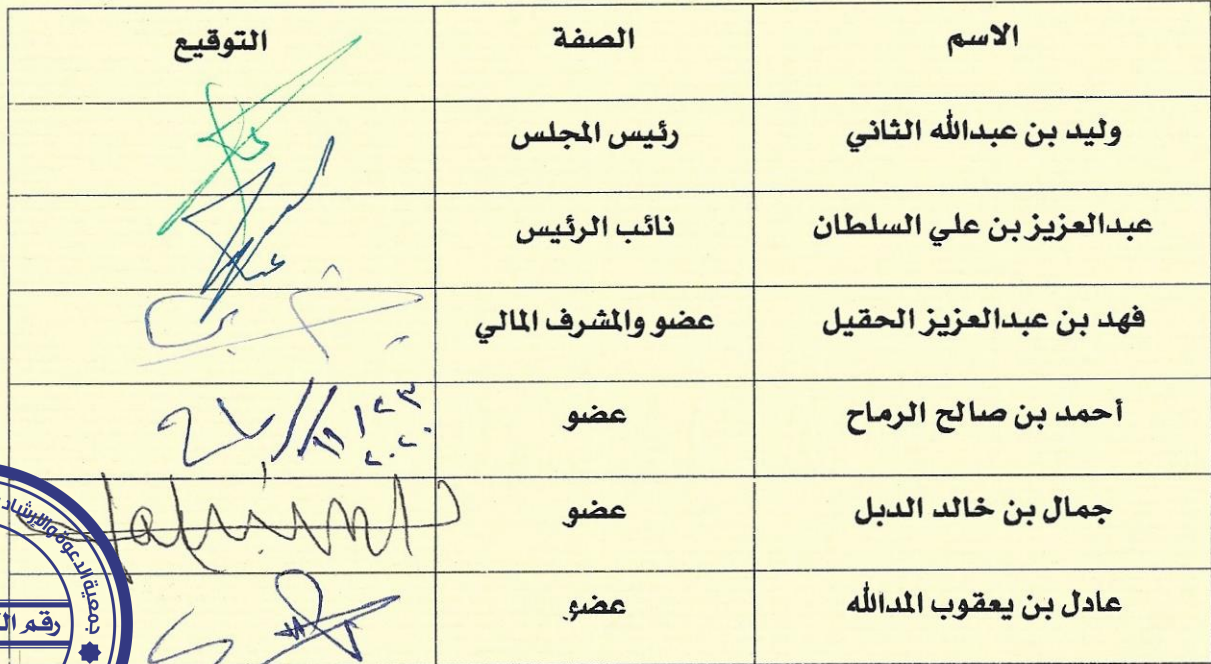 الاسم الصفة التوقيع
وليد بن عبدالله الثاني رئيس المجلس
عبدالعزيز بن علي السلطان نائب الرئيس
فهد بن عبدالعزيز الحقيل عضو والمشرف المالي
أحمد بن صالح الرماح عضو
جمال بن خالد الدبل عضو
عادل بن يعقوب المدالله عضو
جمعية الدعوة والإرشاد
رقم